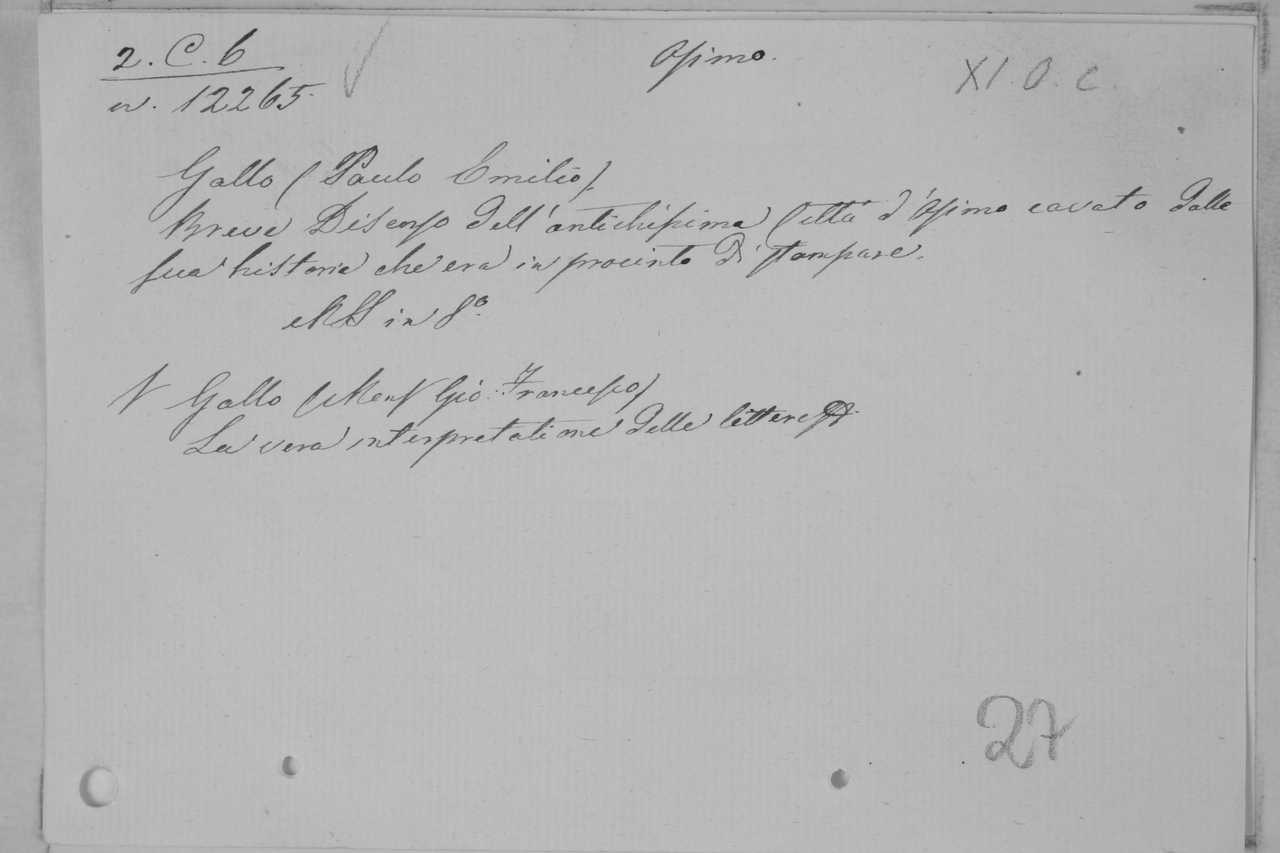 2. C. 6
n. 12265.
Osimo.
XI. O. C.
Gallo (Paulo Emilio).
Breve Discorso dell'antichissima Città d'Osimo cavato dalla
sua historia che era in procinto di stampare.
MS in 8.º
N Gallo (Mons Gio: Francesco)
La vera interpretatione delle lettere
27